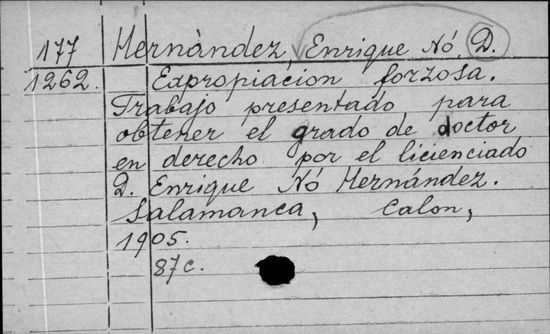 177 Hernàndez, Enrique Nó, D.
1262. Expropiacion forzosa.
Trabajo presentado para
obtener el grado de doctor
en derecho por el licienciado
D. Enrique Nó Hernández.
Salamanca, Calon,
1905.
87 c.